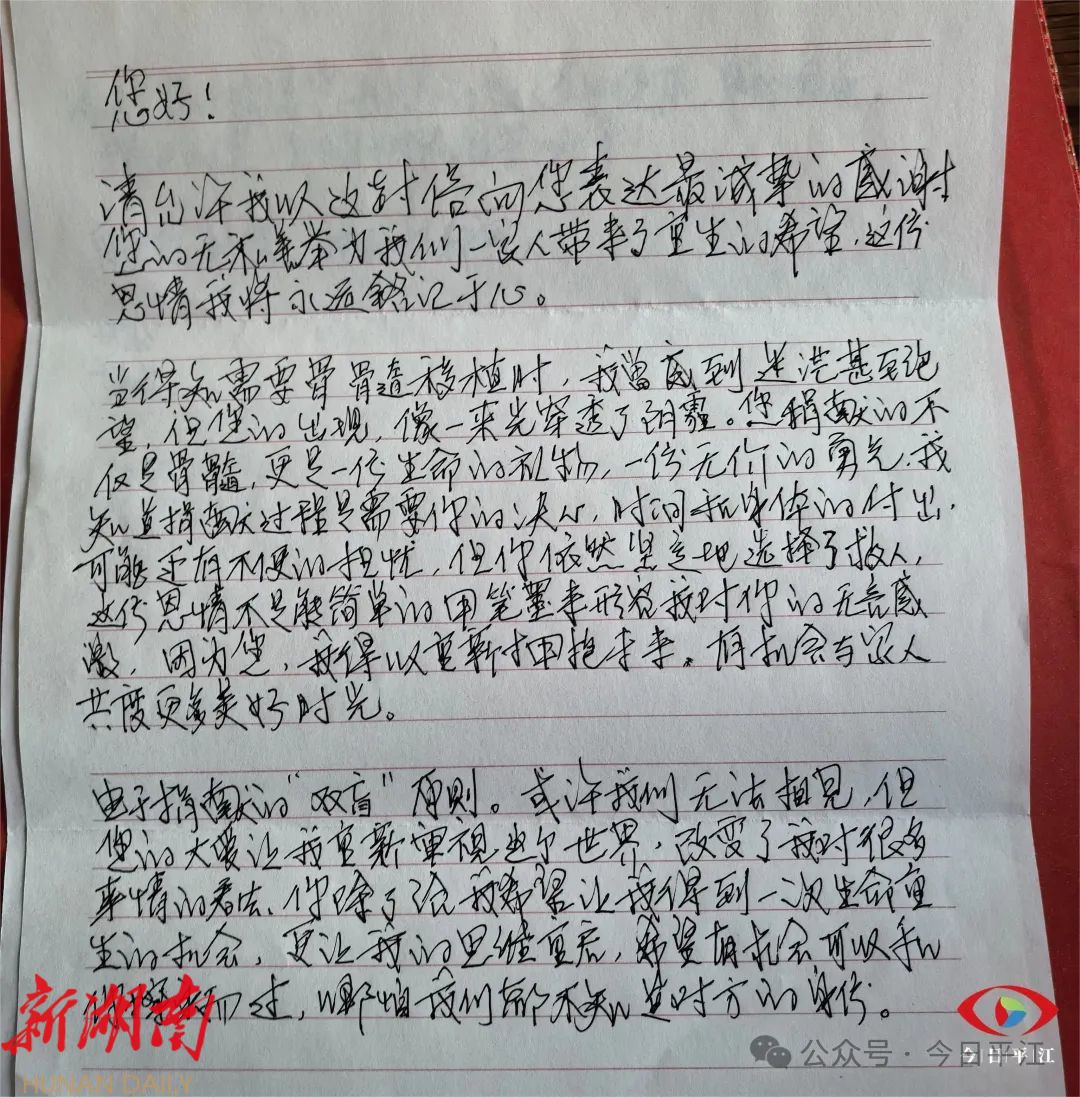 您好！
请允许我以这封信向您表达最诚挚的感谢
您的无私善举为我们一家人带来了重生的希望，这份
恩情我将永远铭记于心。
当得知需要骨骨髓移植时，我曾感到迷茫甚至绝
望，但您的出现，像一束光穿透了阴霾。您捐献的不
仅是骨髓，更是一份生命的礼物，一份无价的勇气，我
知道捐献过程是需要你的决心，时间和身体的付出，
可能还有不便的担忧，但你依然坚定地选择了救人，
这份恩情不是能简单的用笔墨来形容我对你的无言感
激，因为您，我得以重新拥抱未来。有机会与家人
共度更多美好时光。
由于捐献的“双盲”原则。或许我们无法相见，但
您的大爱让我重新审视这个世界，改变了我对很多
事情的看法、你除了给我希望让我得到一次生命重
生的机会，更让我的思维重启，希望有机会可以和
你擦肩而过，哪怕我们都不知道对方的身份。
新湖南
HUNAN DAILY
今日平江
公众号·今日平江